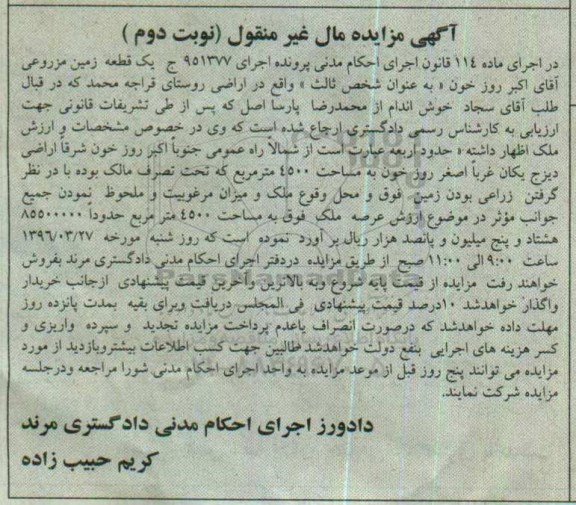 آگهی مزایده مال غیر منقول (نوبت دوم )
در اجرای ماده ۱۱۴ قانون اجرای احکام مدنی پرونده اجرای ۹۵۱۳۷۷ ج یک قطعه زمین مزروعی
آقای اکبر روز خون « به عنوان شخص ثالث » واقع در اراضی روستای قراجه محمد که در قبال
طلب آقای سجاد خوش اندام از محمدرضا پارسا اصل که پس از طی تشریفات قانونی جهت
ارزیابی به کارشناس رسمی دادگستری ارجاع شده است که وی در خصوص مشخصات و ارزش
ملک اظهار داشته « حدود اربعه عبارت است از شمالاً راه عمومی جنوباً اکبر روز خون شرقاً اراضی
دیزج یکان غرباً اصغر روز خون به مساحت ۴۵۰۰ مترمربع که تحت تصرف مالک بوده با در نظر
گرفتن زراعی بودن زمین فوق و محل وقوع ملک و میزان مرغوبیت و ملحوظ نمودن جمیع
جوانب مؤثر در موضوع ارزش عرصه ملک فوق به مساحت ۴۵۰۰ متر مربع حدوداً ۸۵۵۰۰۰۰۰
هشتاد و پنج میلیون و پانصد هزار ریال بر آورد نموده است که روز شنبه مورخه ۱۳۹۶/۰۳/۲۷
ساعت ۹:۰۰ الی ۱۱:۰۰ صبح از طریق مزایده دردفتر اجرای احکام مدنی دادگستری مرند بفروش
خواهند رفت مزایده از قیمت پایه شروع وبه بالاترین وآخرین قیمت پیشنهادی ازجانب خریدار
واگذار خواهدشد ۱۰درصد قیمت پیشنهادی فی المجلس دریافت وبرای بقیه بمدت پانزده روز
مهلت داده خواهدشد که درصورت انصراف یاعدم پرداخت مزایده تجدید و سپرده واریزی و
کسر هزینه های اجرایی بنفع دولت خواهدشد طالبین جهت کسب اطلاعات بیشتروبازدید از مورد
مزایده می توانند پنج روز قبل از موعد مزایده به واحد اجرای احکام مدنی شورا مراجعه ودرجلسه
مزایده شرکت نمایند.
دادورز اجرای احکام مدنی دادگستری مرند
کریم حبیب زاده
ParsNamadData